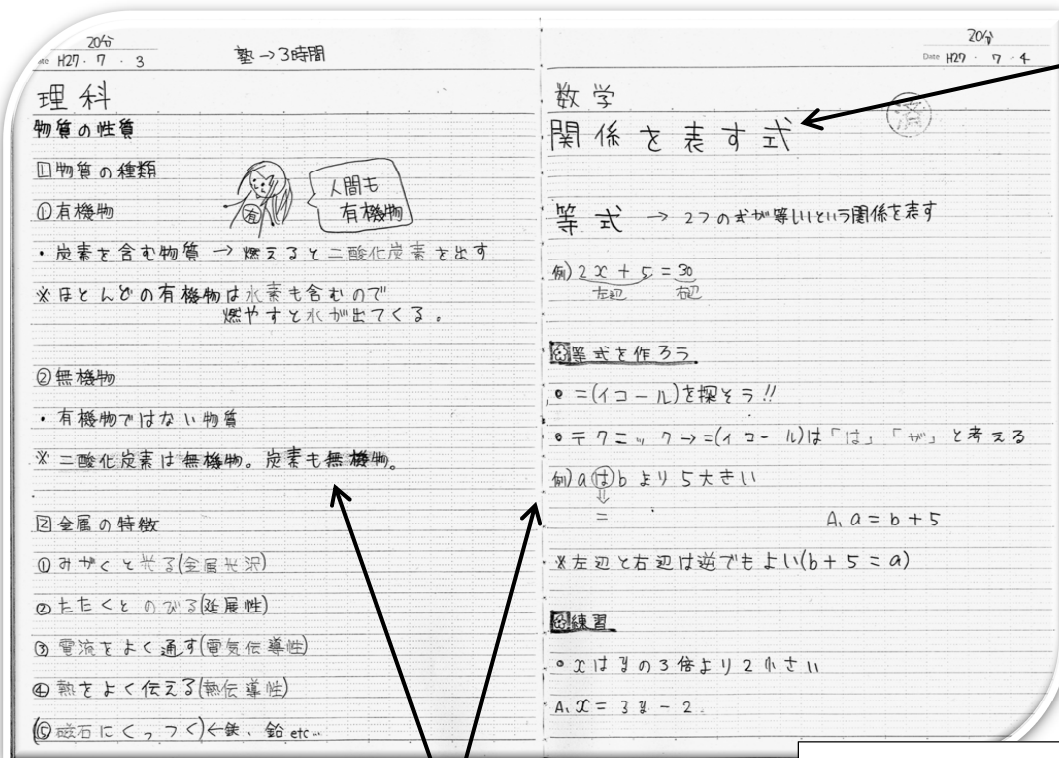 20分
Date H27・7・3
塾→3時間
理科
物質の性質
1物質の種類
①有機物
人間も
有機物
有
・炭素を含む物質 → 燃えると二酸化炭素を出す
※ほとんどの有機物は水素も含むので
燃やすと水が出てくる。
②無機物
・有機物ではない物質
※二酸化炭素は無機物。炭素も無機物。
2金属の特徴
①みがくと光る(金属光沢)
②たたくとのびる(延展性)
③電流をよく通す(電気伝導性)
④熱をよく伝える(熱伝導性)
(⑤磁石にくっつく)←鉄、鉛 etc…
20分
Date H27・7・4
数学
済
関係を表す式
等式 → 2つの式が等しいという関係を表す
例) 2x + 5 = 30
左辺 右辺
等式を作ろう
• =(イコール)を探そう!!
• テクニック→=(イコール)は「は」「が」と考える
例) aはbより5大きい
⇓
=
A, a = b + 5
※左辺と右辺は逆でもよい(b + 5 = a)
練習
• xはyの3倍より2小さい
A, x = 3y - 2.